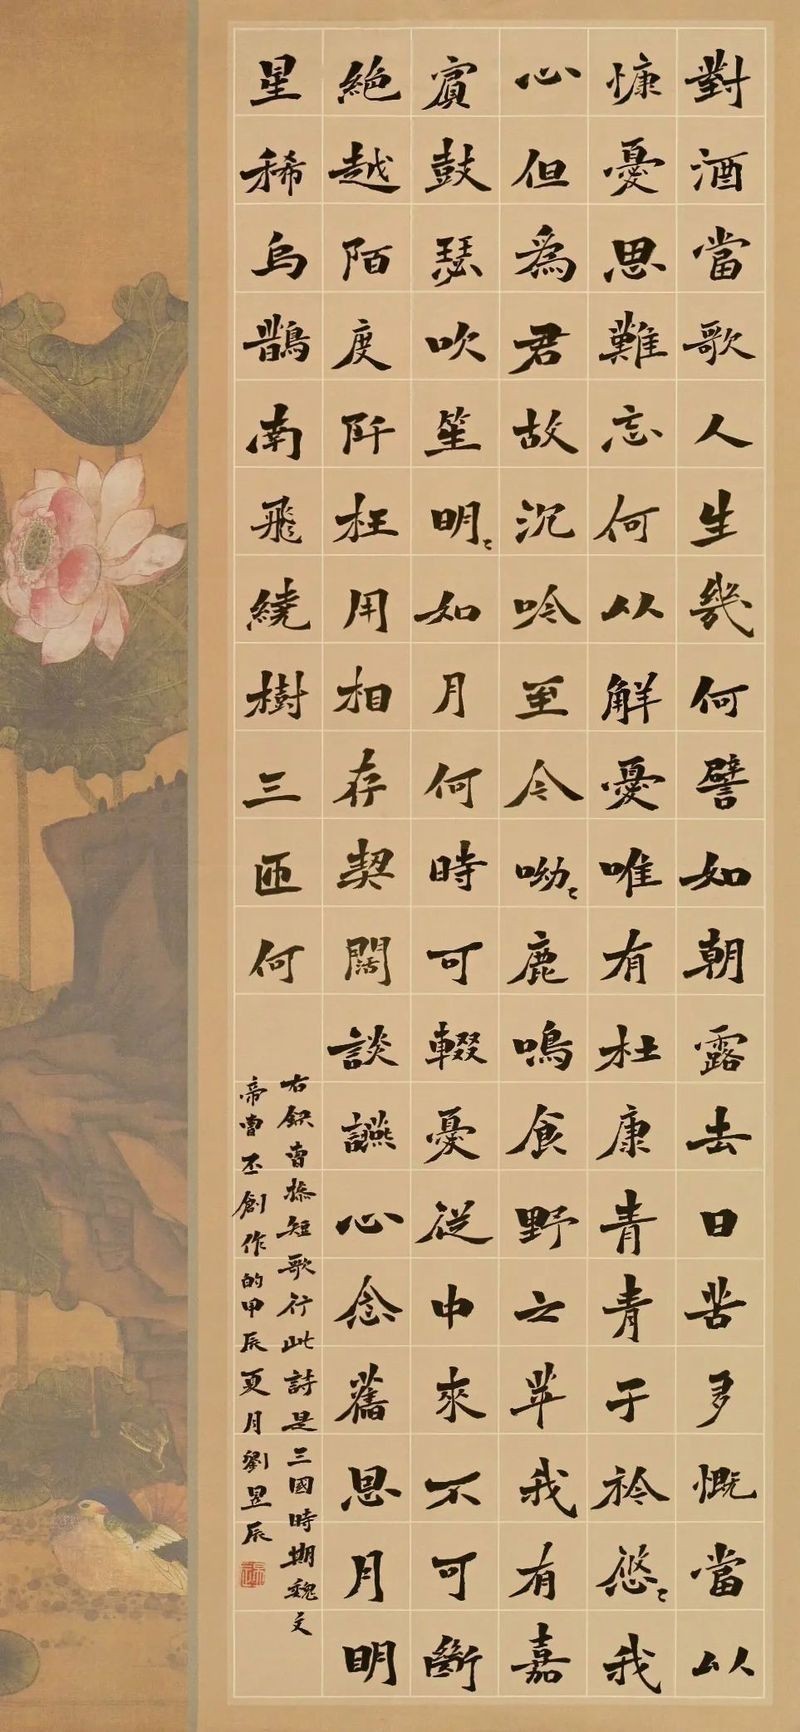 對酒當歌人生幾何譬如朝露去日苦多慨當以
慷憂思難忘何以解憂唯有杜康青青子衿悠〻我
心但為君故沉吟至今呦〻鹿鳴食野之苹我有嘉
賓鼓瑟吹笙明〻如月何時可輟憂從中來不可斷
絶越陌度阡枉用相存契闊談讌心念舊恩月明
星稀烏鵲南飛繞樹三匝何
右錄曹操短歌行此詩是三國時期魏文
帝曹丕創作的甲辰夏月劉昱辰